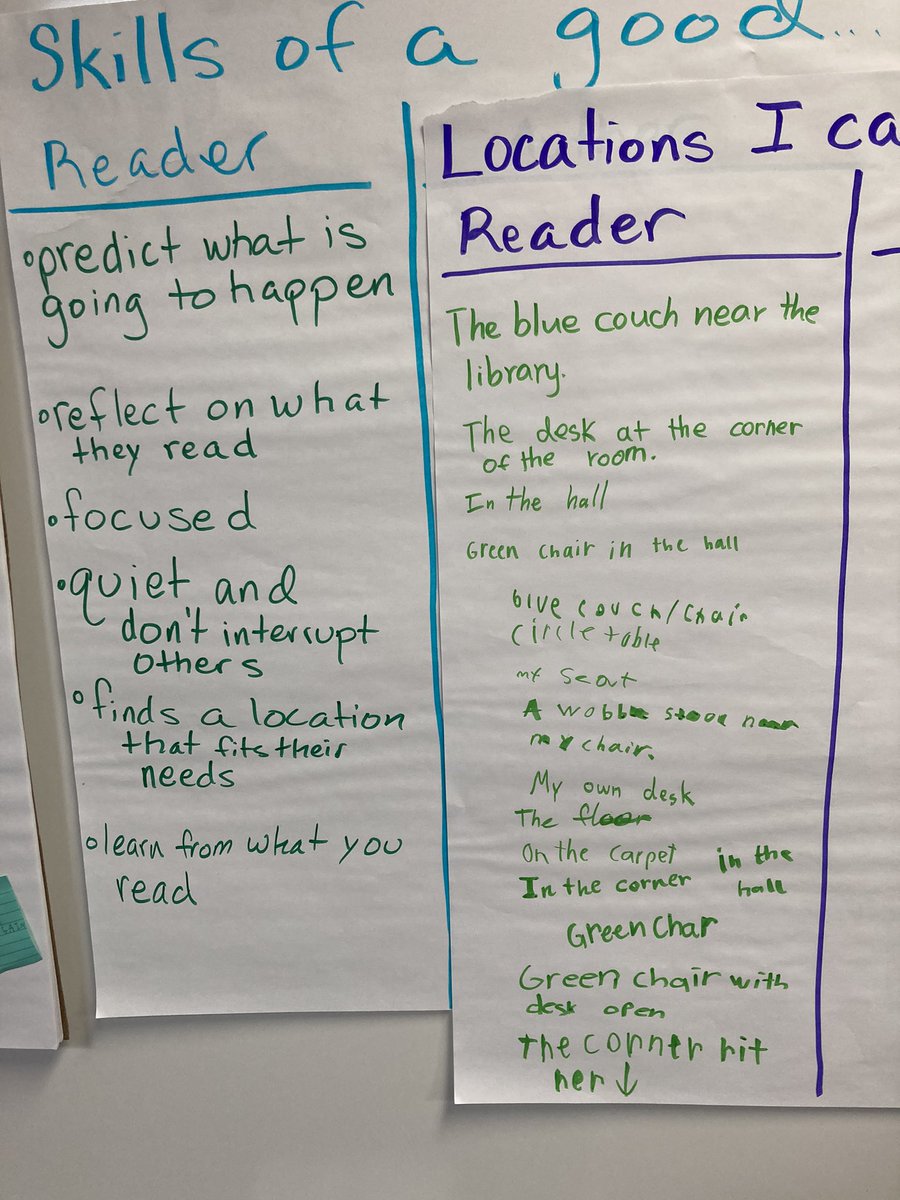 Skills of a good...
Reader
•predict what is
going to happen
•reflect on what
they read
•focused
•quiet and
don't interrupt
others
•finds a location
that fits their
needs
•learn from what you
read
Locations I ca
Reader
The blue couch near the
library.
The desk at the corner
of the room.
In the hall
Green chair in the hall
blue couch/chair
circle table
my seat
A wobble stool near
my chair.
My own desk
The floor
On the carpet in the
In the corner hall
Green Char
Green chair with
desk open
the corner rit
her ↓